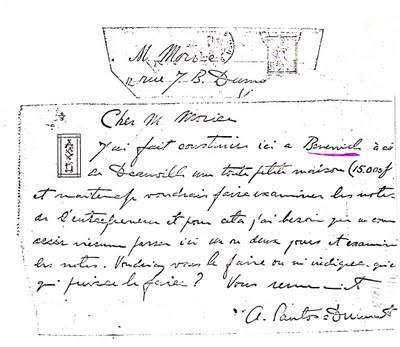 M. Morice
rue J. B. Dumas
Cher M. Morice
J'ai fait construire ici a Benerville à cô
de Deauville une toute petite maison (15.000f
et maintenant je voudrais faire examiner les notes
de l'entrepreneur et pour cela j'ai besoin que
vienne passer ici un ou deux jours et examiner
les notes. Voudriez vous le faire ou m'indiquer quel
qui puisse le faire? Vous remerciant
A. Santos=Dumont